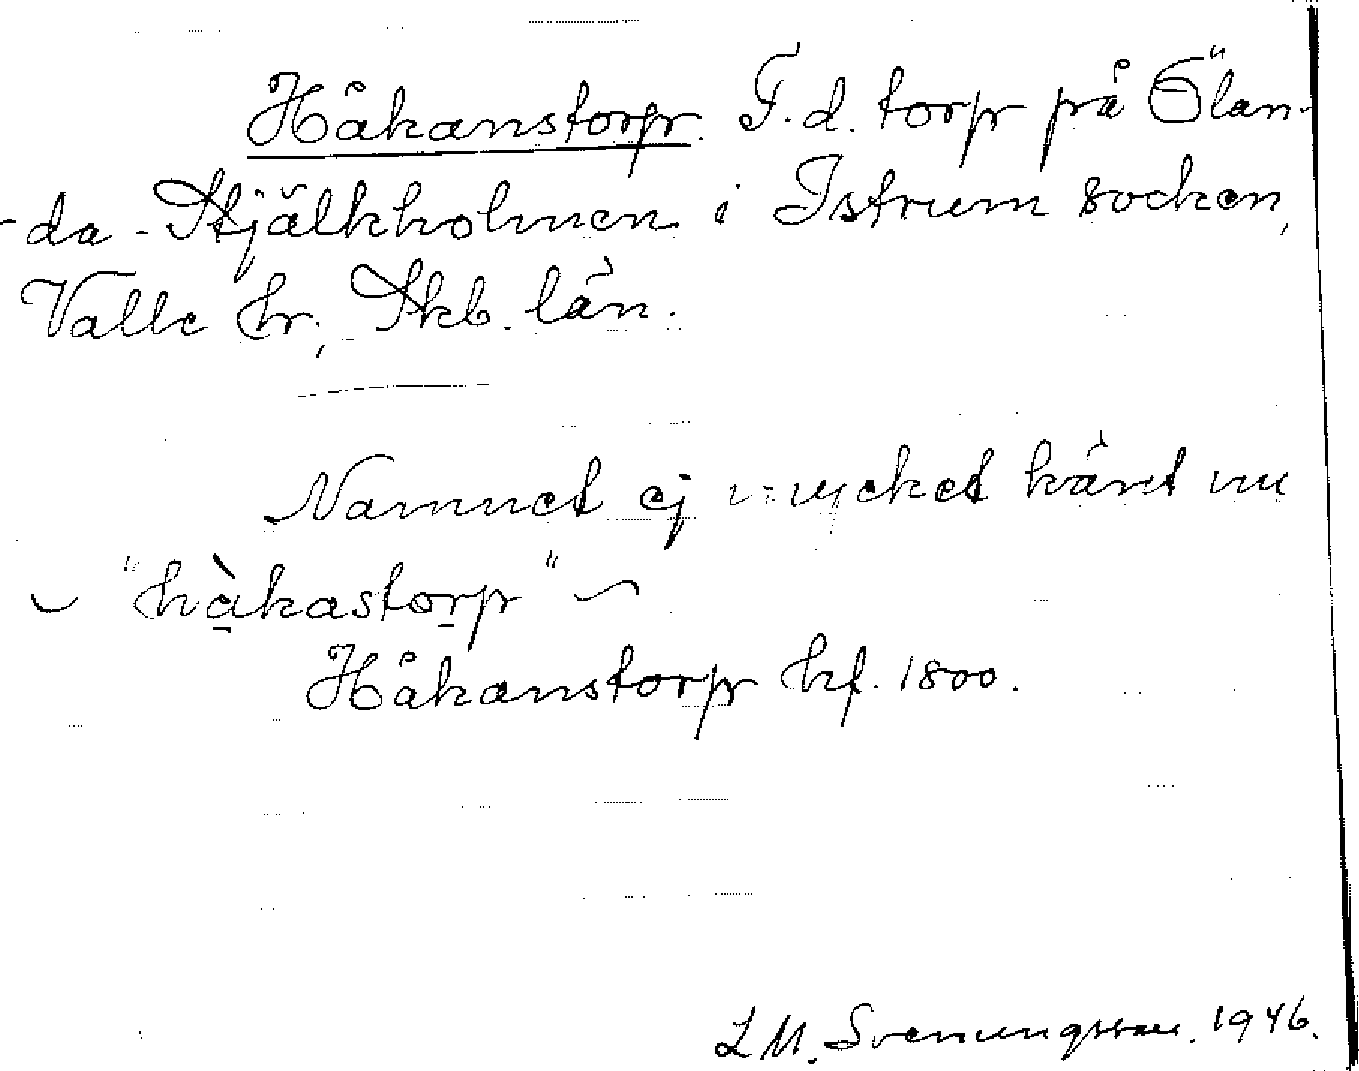 Håkanstorp. F.d. torp på Ölan-
-da-Stjälkholmen i Istrum socken,
Valle hr, Skb. län.
Namnet ej mycket känt nu
"hàkastorp"
Håkanstorp hf. 1800.
L M. Svenungsson. 1946.